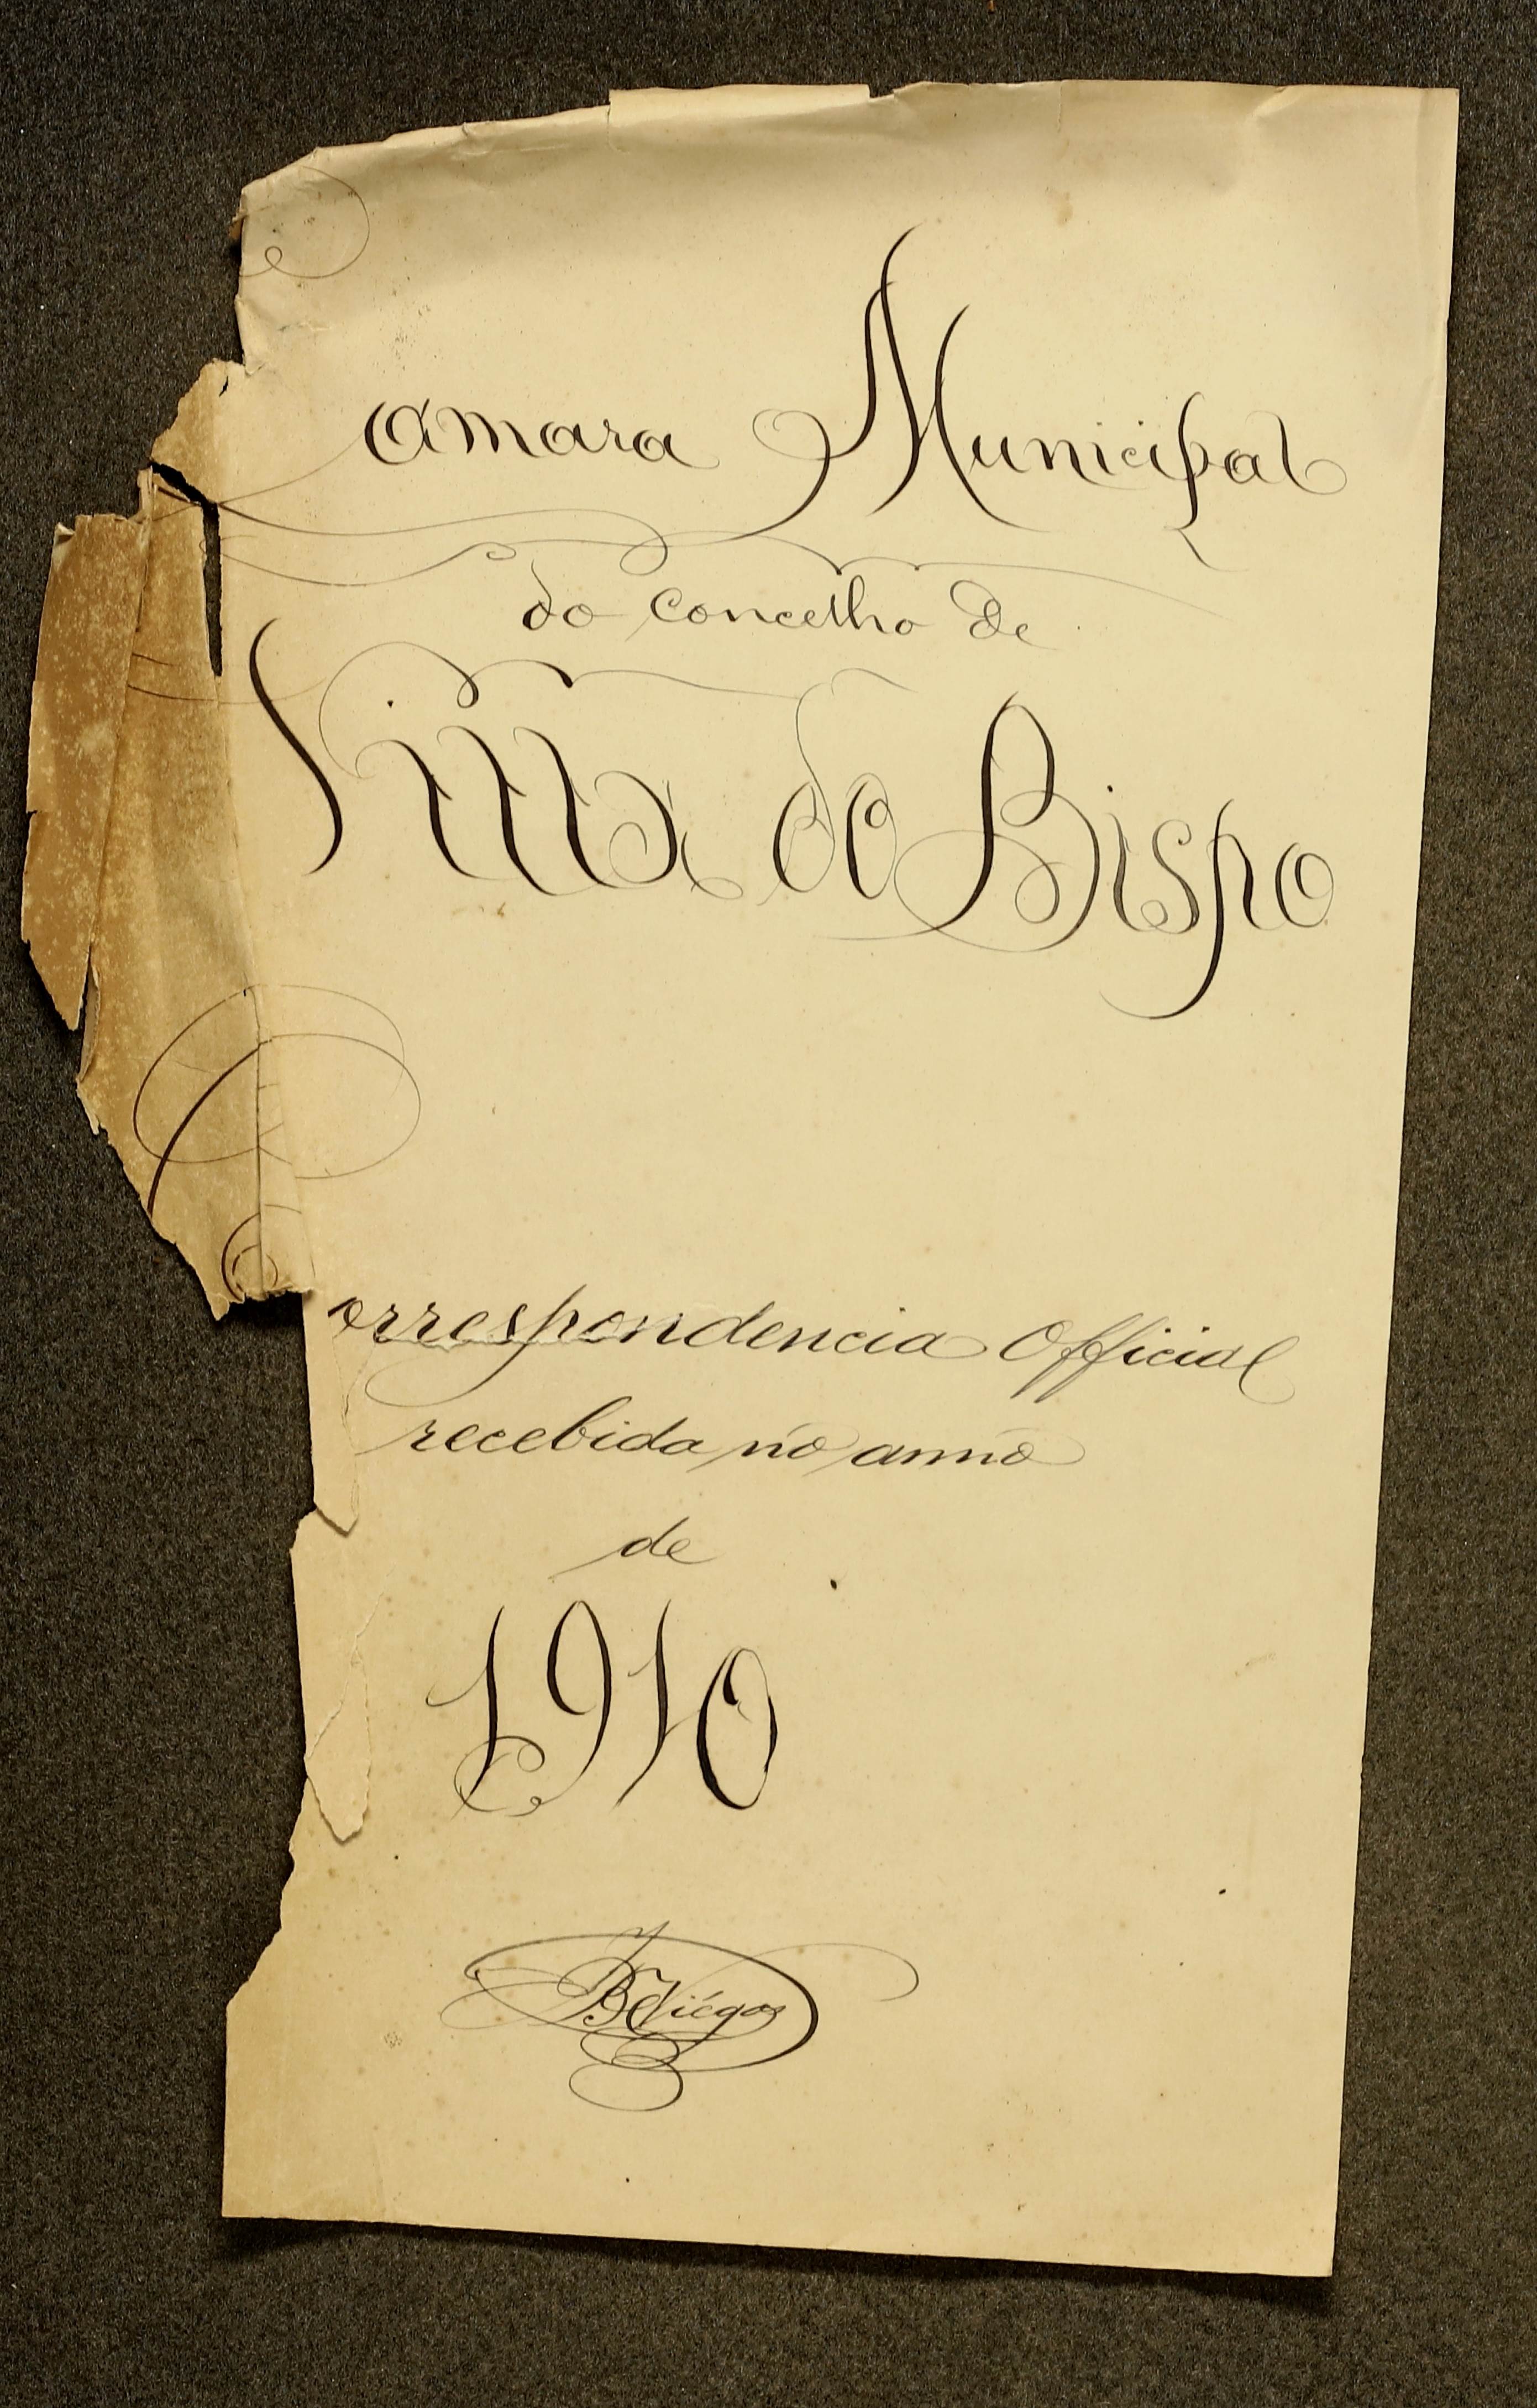 amara Municipal
do concelho de
Villa do Bispo
orrespondencia Official
recebida no anno
de
1910
Viégas